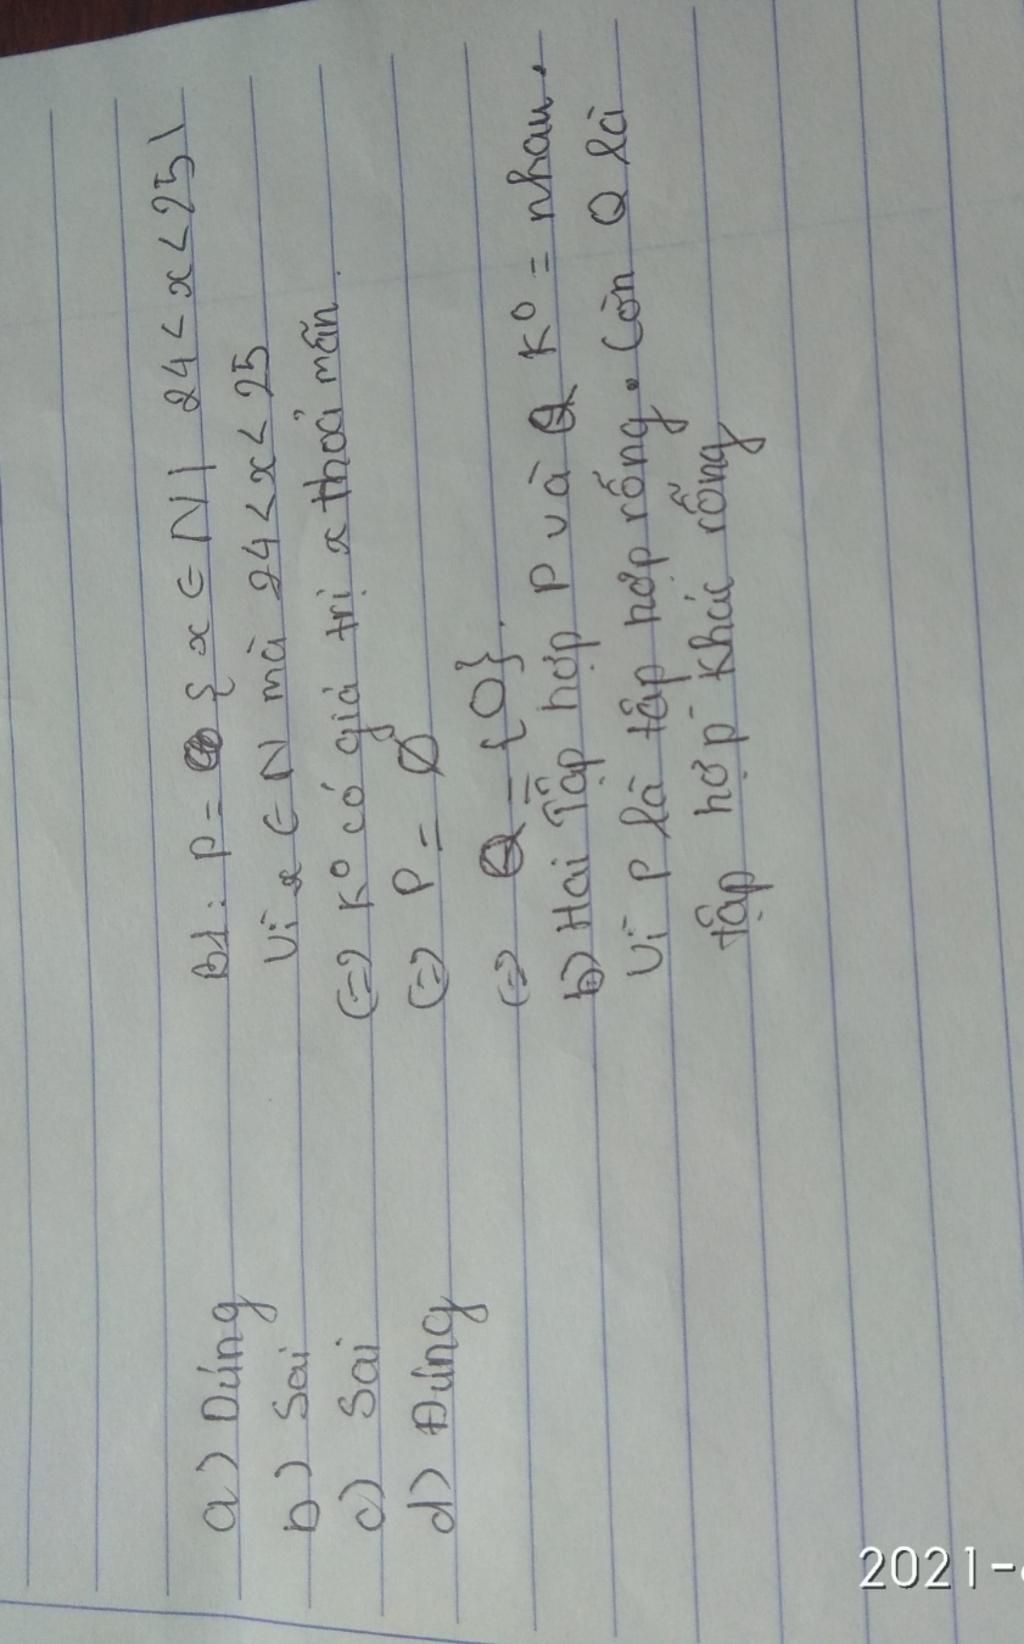 a) Dúng
b) Sai
c) Sai
d) Đúng
B1: P = { x ∈ N | 24 < x < 25 \
Vì x ∈ N mà 24 < x < 25
(=) K° có giá trị x thoả mãn.
(=) P = Ø
(=) Q = {O}.
b) Hai Tập hợp P và Q K° = nhau.
Vì P là tập hợp rống. Còn Q là
tập hợp khác rỗng
2021-